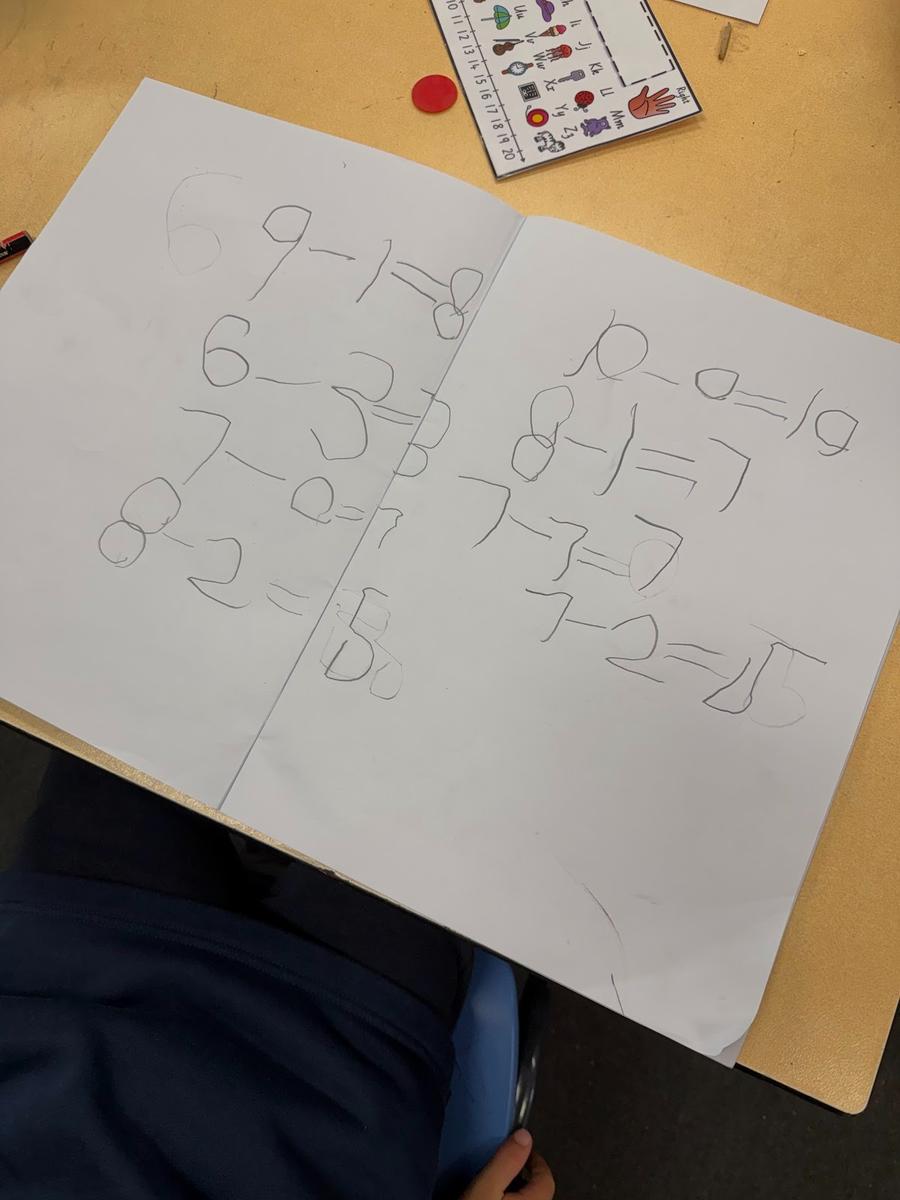 9-1=8
6-3=3
7-0=7
8-2=
10-0=10
8-1=7
7-7=
7-2=
10 11 12 13 14 15 16 17 18 19 20
Uu
Vv
Ww
Xx
Yy
Zz
Ii
Jj
Kk
Ll
Mm
Right